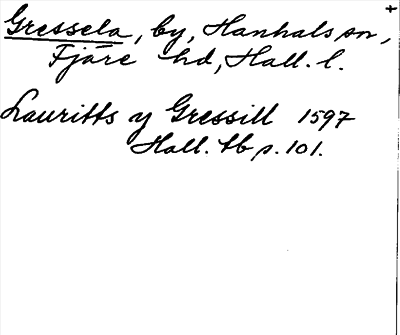 Gressela, by, Hanhals sn,
Fjäre hd, Hall. l.
Lauritts y Gressill 1597
Hall. tb p. 101.